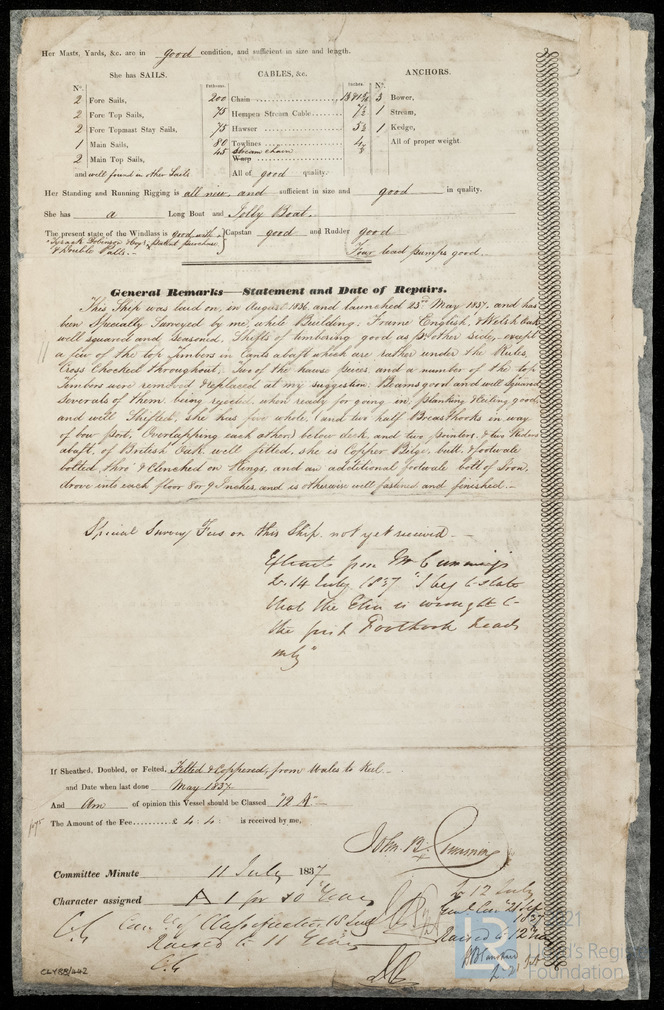 Her Masts, Yards, &c. are in good condition, and sufficient in size and length.
She has SAILS.
CABLES, &c.
ANCHORS.
N°.
Fathoms.
Inches.
N°.
2 Fore Sails,
200 Chain
3 Bower,
2 Fore Top Sails,
75 Hempen Stream Cable 7½
1 Stream,
2 Fore Topmast Stay Sails,
75 Hawser 5½
1 Kedge,
1 Main Sails,
80 Towlines 4
All of proper weight.
2 Main Top Sails,
45 Stream chain
Warp
and well found in other Sails
All of good quality.
Her Standing and Running Rigging is all new, and sufficient in size and good in quality.
She has a Long Boat and Jolly Boat.
The present state of the Windlass is good with Capstan good and Rudder good
Patent purchase
& Double Palls.
Four lead pumps good.
General Remarks—Statement and Date of Repairs.
This Ship was laid on, in August 1836, and launched 23rd May 1837. and has
been Specially Surveyed by me, while Building; Frame English, & Welsh Oak
well squared and Seasoned. Shifts of timbering good as pr other side, except
a few of the top timbers in Cants abaft which are rather under the Rules,
Cross Chocked throughout; Two of the hause pieces, and a number of the top
timbers were removed & replaced at my suggestion. Beams good and well Squared
Severals of them being rejected, when ready for going in, planking & Ceiling good,
and well Shifted, she has four whole, (and two half Breasthooks in way
of bow port, Overlapping each other) below deck, and two pointers, & two Riders
abaft, of British Oak, well fitted, she is Copper Bilge, butt, & footwale
bolted, thro' & Clenched on Rings, and an additional footwale bolt of Iron,
drove into each floor 8 or 9 Inches, and is otherwise well fastened and finished.
Special Survey Fees on this Ship not yet received.
Extract from Mr Cumming's
Lr. 14 July 1837 "I beg to state
that the Elm is wrought to
the first Foothook heads
only"
If Sheathed, Doubled, or Felted, Felted & Coppered, from Wales to Keel
and Date when last done May 1837
And Am of opinion this Vessel should be Classed "12 A"
The Amount of the Fee £ 4 : 4 : is received by me,
John B. Cumming
Committee Minute 11 July 1837
Character assigned A 1 for 10 Years
Lr 12 July
1837
C.G
Raised to 11 Years
Raised to 12 Years
C.G
CLY88/442
LR
Lloyd's Register
Foundation